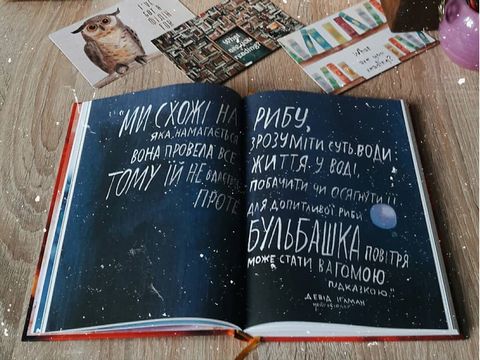 What
are you
"МИ СХОЖІ НА РИБУ,
ЯКА НАМАГАЄТЬСЯ ЗРОЗУМІТИ СУТЬ ВОДИ.
ВОНА ПРОВЕЛА ВСЕ ЖИТТЯ У ВОДІ,
ТОМУ ЇЙ НЕ ВДАЄТЬСЯ ПОБАЧИТИ ЧИ ОСЯГНУТИ ЇЇ
ПРОТЕ ДЛЯ ДОПИТЛИВОЇ РИБИ
БУЛЬБАШКА ПОВІТРЯ
МОЖЕ СТАТИ ВАГОМОЮ
ПІДКАЗКОЮ."
ДЕВІД ІГЛМАН